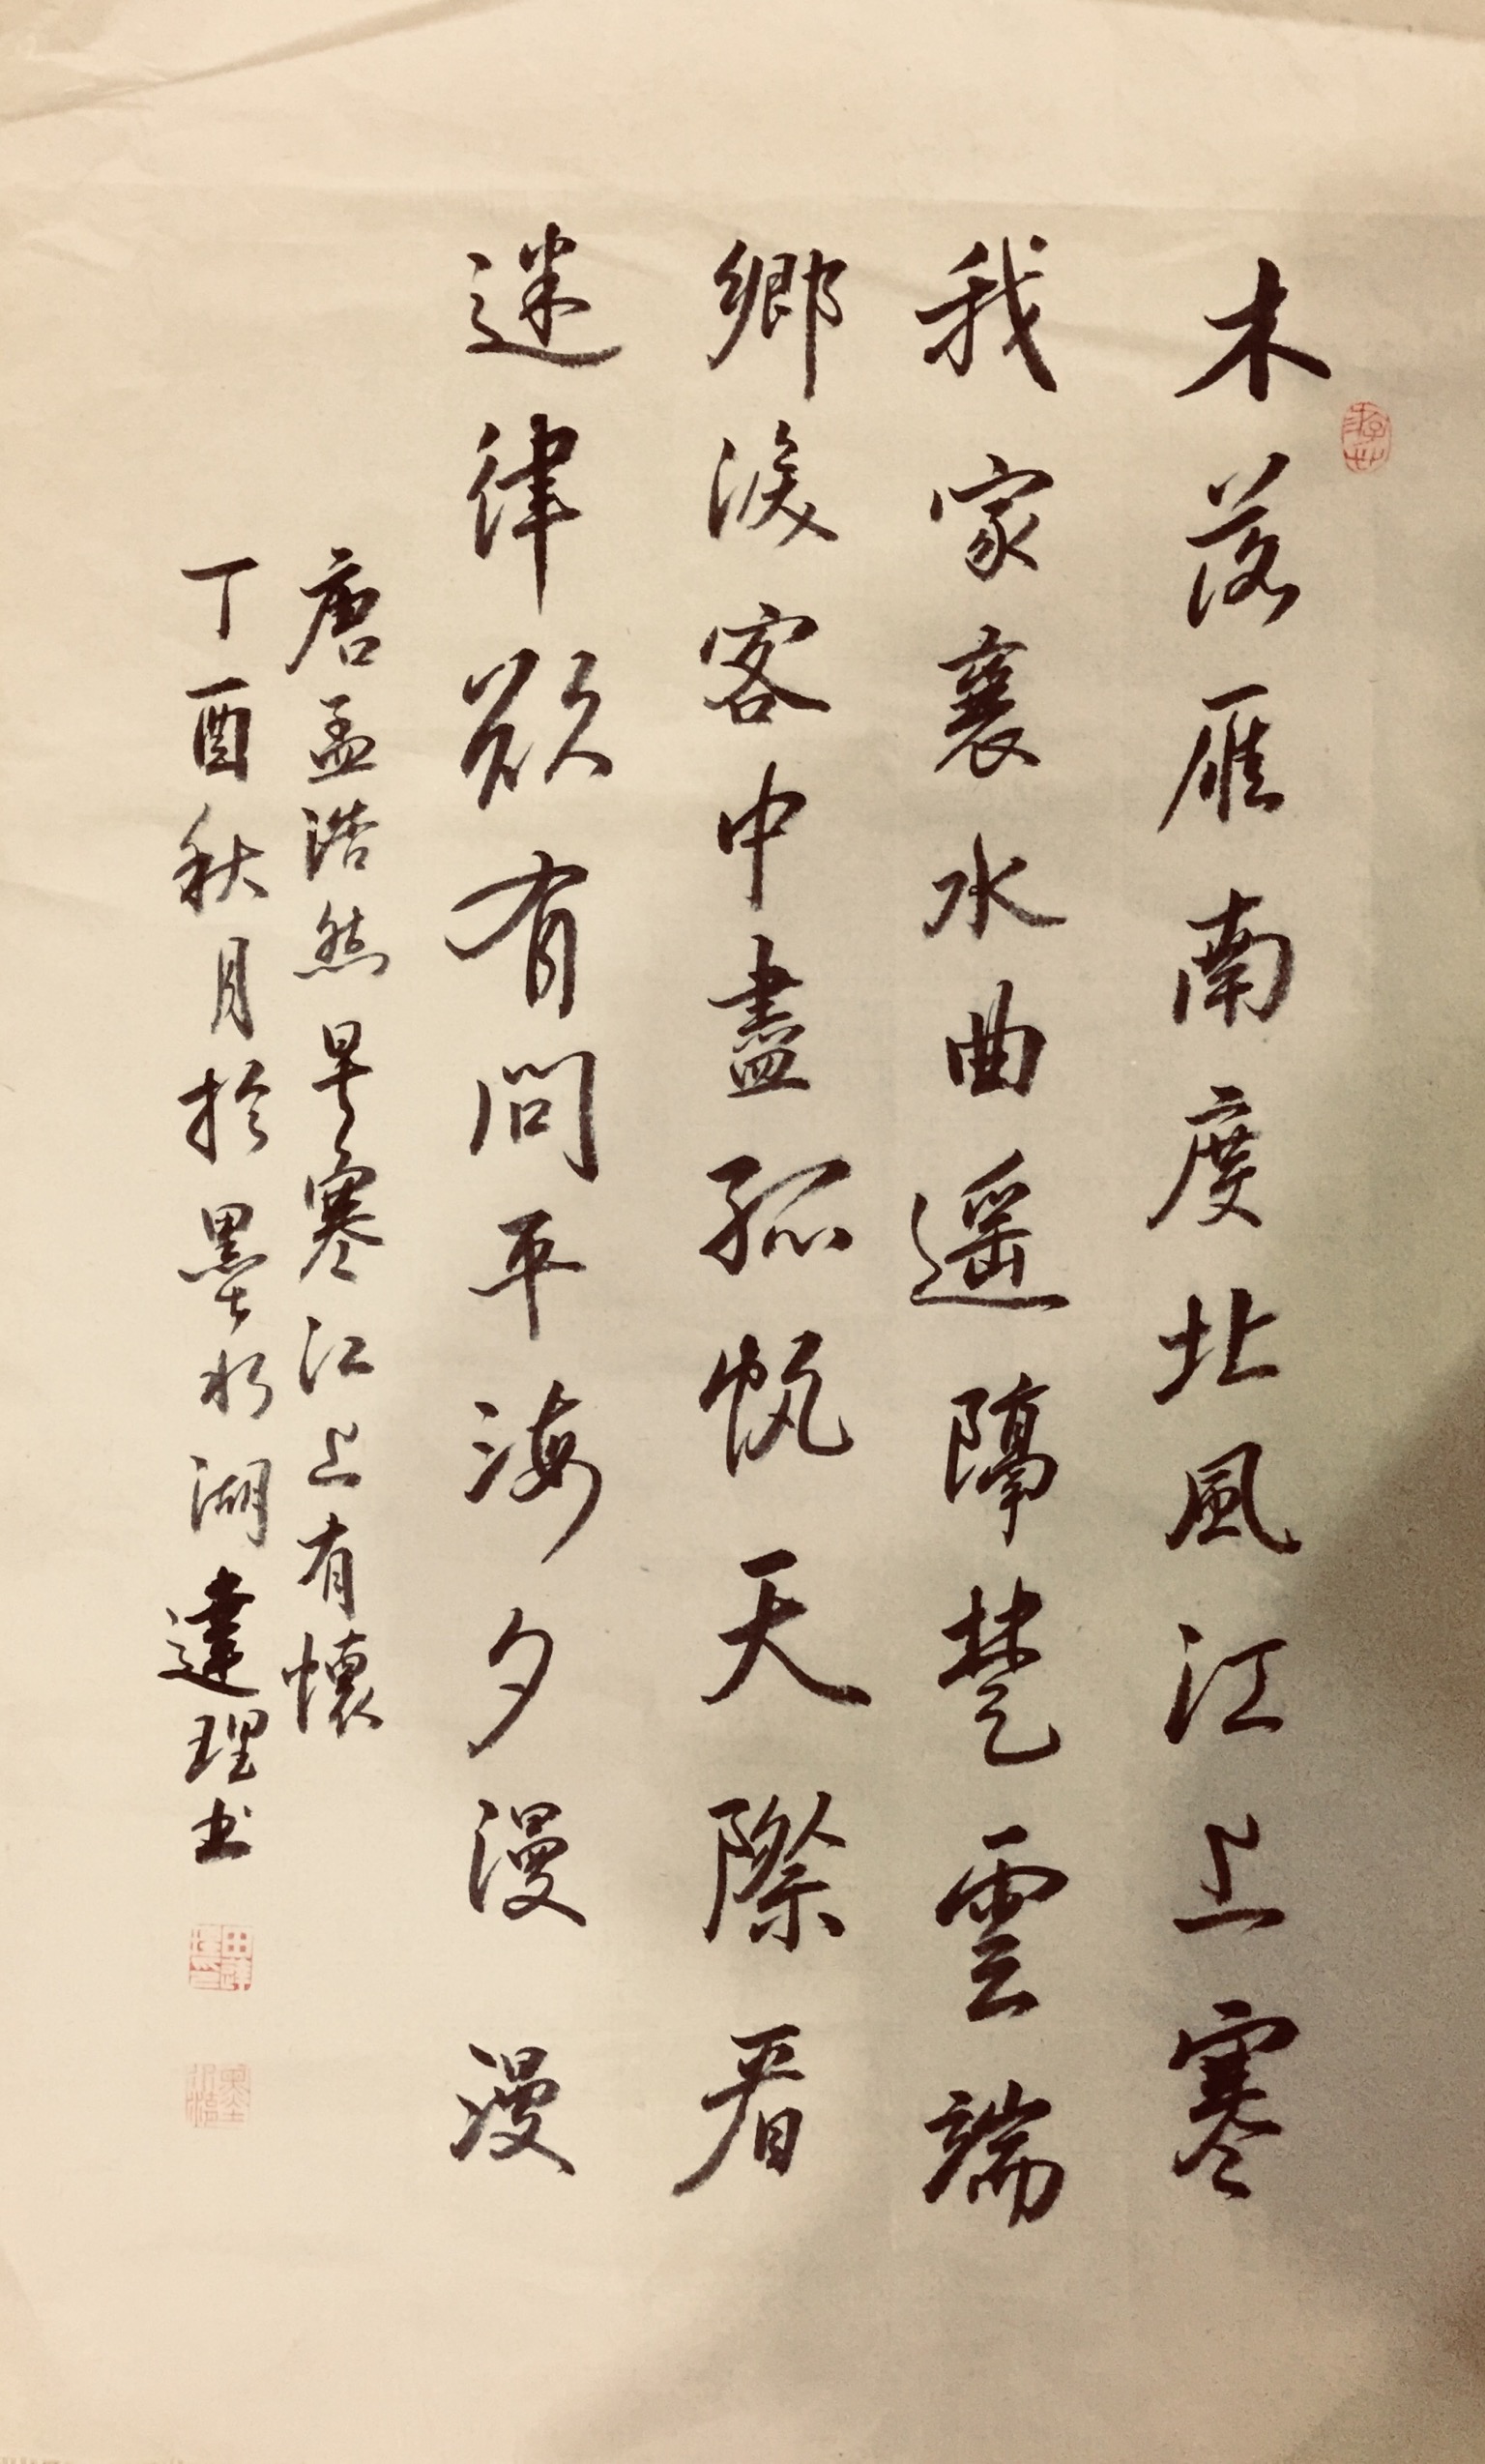 木落雁南度北風江上寒
我家襄水曲遥隔楚雲端
鄉淚客中盡孤帆天際看
迷律欲有問平海夕漫漫
唐孟浩然早寒江上有懷
丁酉秋月於墨水湖達理书